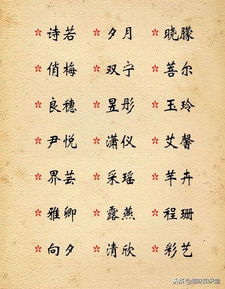 * 诗若 * 夕月 * 晓朦
* 俏梅 * 双宁 * 菩尔
* 良穗 * 昱彤 * 玉玲
* 尹悦 * 潇仪 * 艾馨
* 界芸 * 采瑶 * 芊卉
* 雅卿 * 露燕 * 程珊
* 向夕 * 清欣 * 彩艺